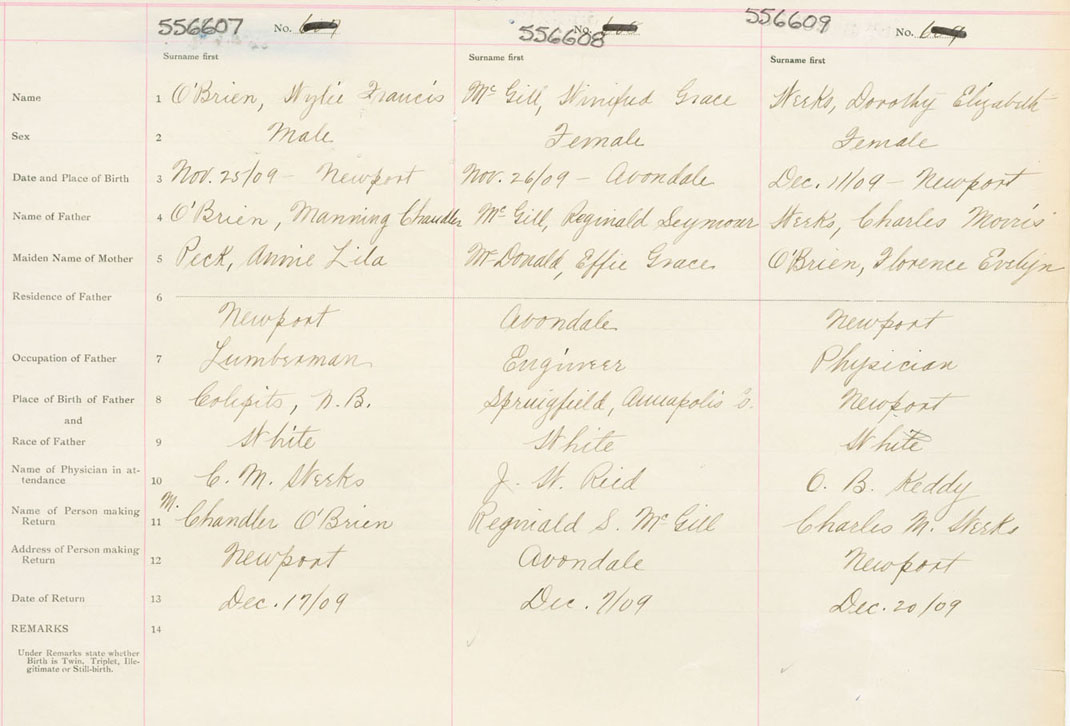 556607 No.
556608 No.
556609 No.
Surname first Surname first Surname first
Name 1 O'Brien, Wylie Francis McGill, Winifred Grace Weeks, Dorothy Elizabeth
Sex 2 Male Female Female
Date and Place of Birth 3 Nov. 25/09 – Newport Nov. 26/09 – Avondale Dec. 11/09 – Newport
Name of Father 4 O'Brien, Manning Chandler McGill, Reginald Seymour Weeks, Charles Morris
Maiden Name of Mother 5 Peck, Annie Lila McDonald, Effie Grace O'Brien, Florence Evelyn
Residence of Father 6
Newport Avondale Newport
Occupation of Father 7 Lumberman Engineer Physician
Place of Birth of Father 8 N.B. Springfield, Annapolis Newport
and
Race of Father 9 White White White
Name of Physician in at-
tendance 10 C. M. Weeks J. W. Reid O. B. Keddy
Name of Person making
Return 11 M. Chandler O'Brien Reginald S. McGill Charles M. Weeks
Address of Person making
Return 12 Newport Avondale Newport
Date of Return 13 Dec. 17/09 Dec. 7/09 Dec. 20/09
REMARKS 14
Under Remarks state whether
Birth is Twin, Triplet, Ille-
gitimate or Still-birth.